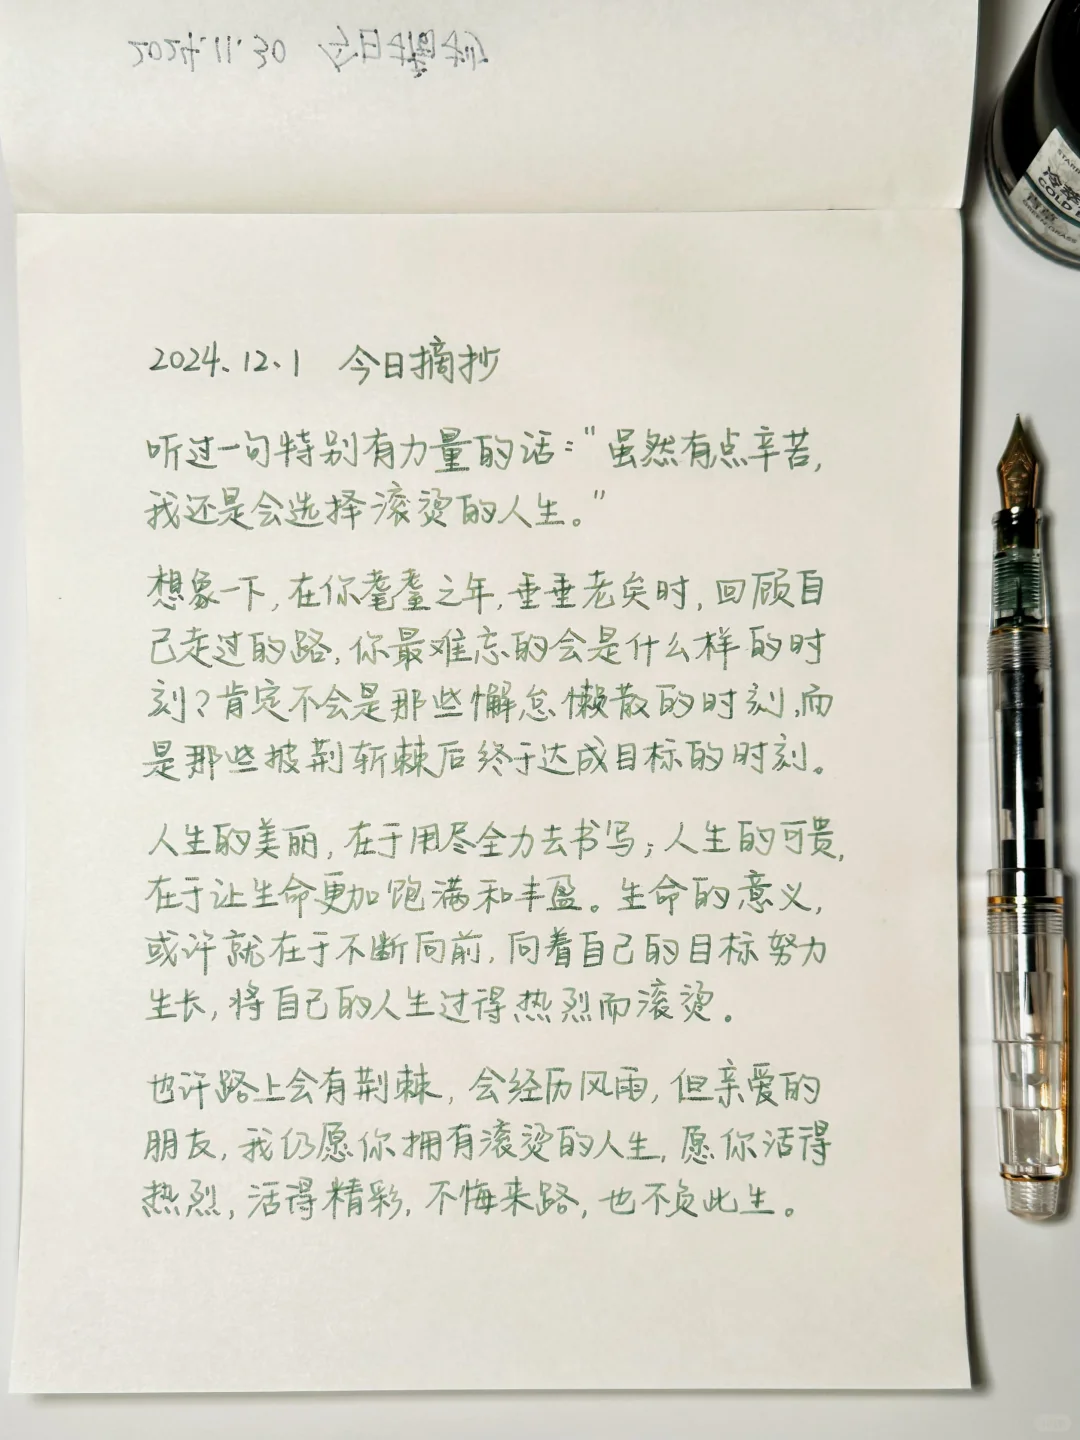 2024.11.30 今日摘抄
STAR
冷萃
COLD
2024.12.1 今日摘抄
听过一句特别有力量的话："虽然有点辛苦,
我还是会选择滚烫的人生。"
想象一下,在你耄耋之年,垂垂老矣时,回顾自
己走过的路,你最难忘的会是什么样的时
刻?肯定不会是那些懈怠懒散的时刻,而
是那些披荆斩棘后终于达成目标的时刻。
人生的美丽,在于用尽全力去书写;人生的可贵,
在于让生命更加饱满和丰盈。生命的意义,
或许就在于不断向前,向着自己的目标努力
生长,将自己的人生过得热烈而滚烫。
也许路上会有荆棘,会经历风雨,但亲爱的
朋友,我仍愿你拥有滚烫的人生,愿你活得
热烈,活得精彩,不悔来路,也不负此生。